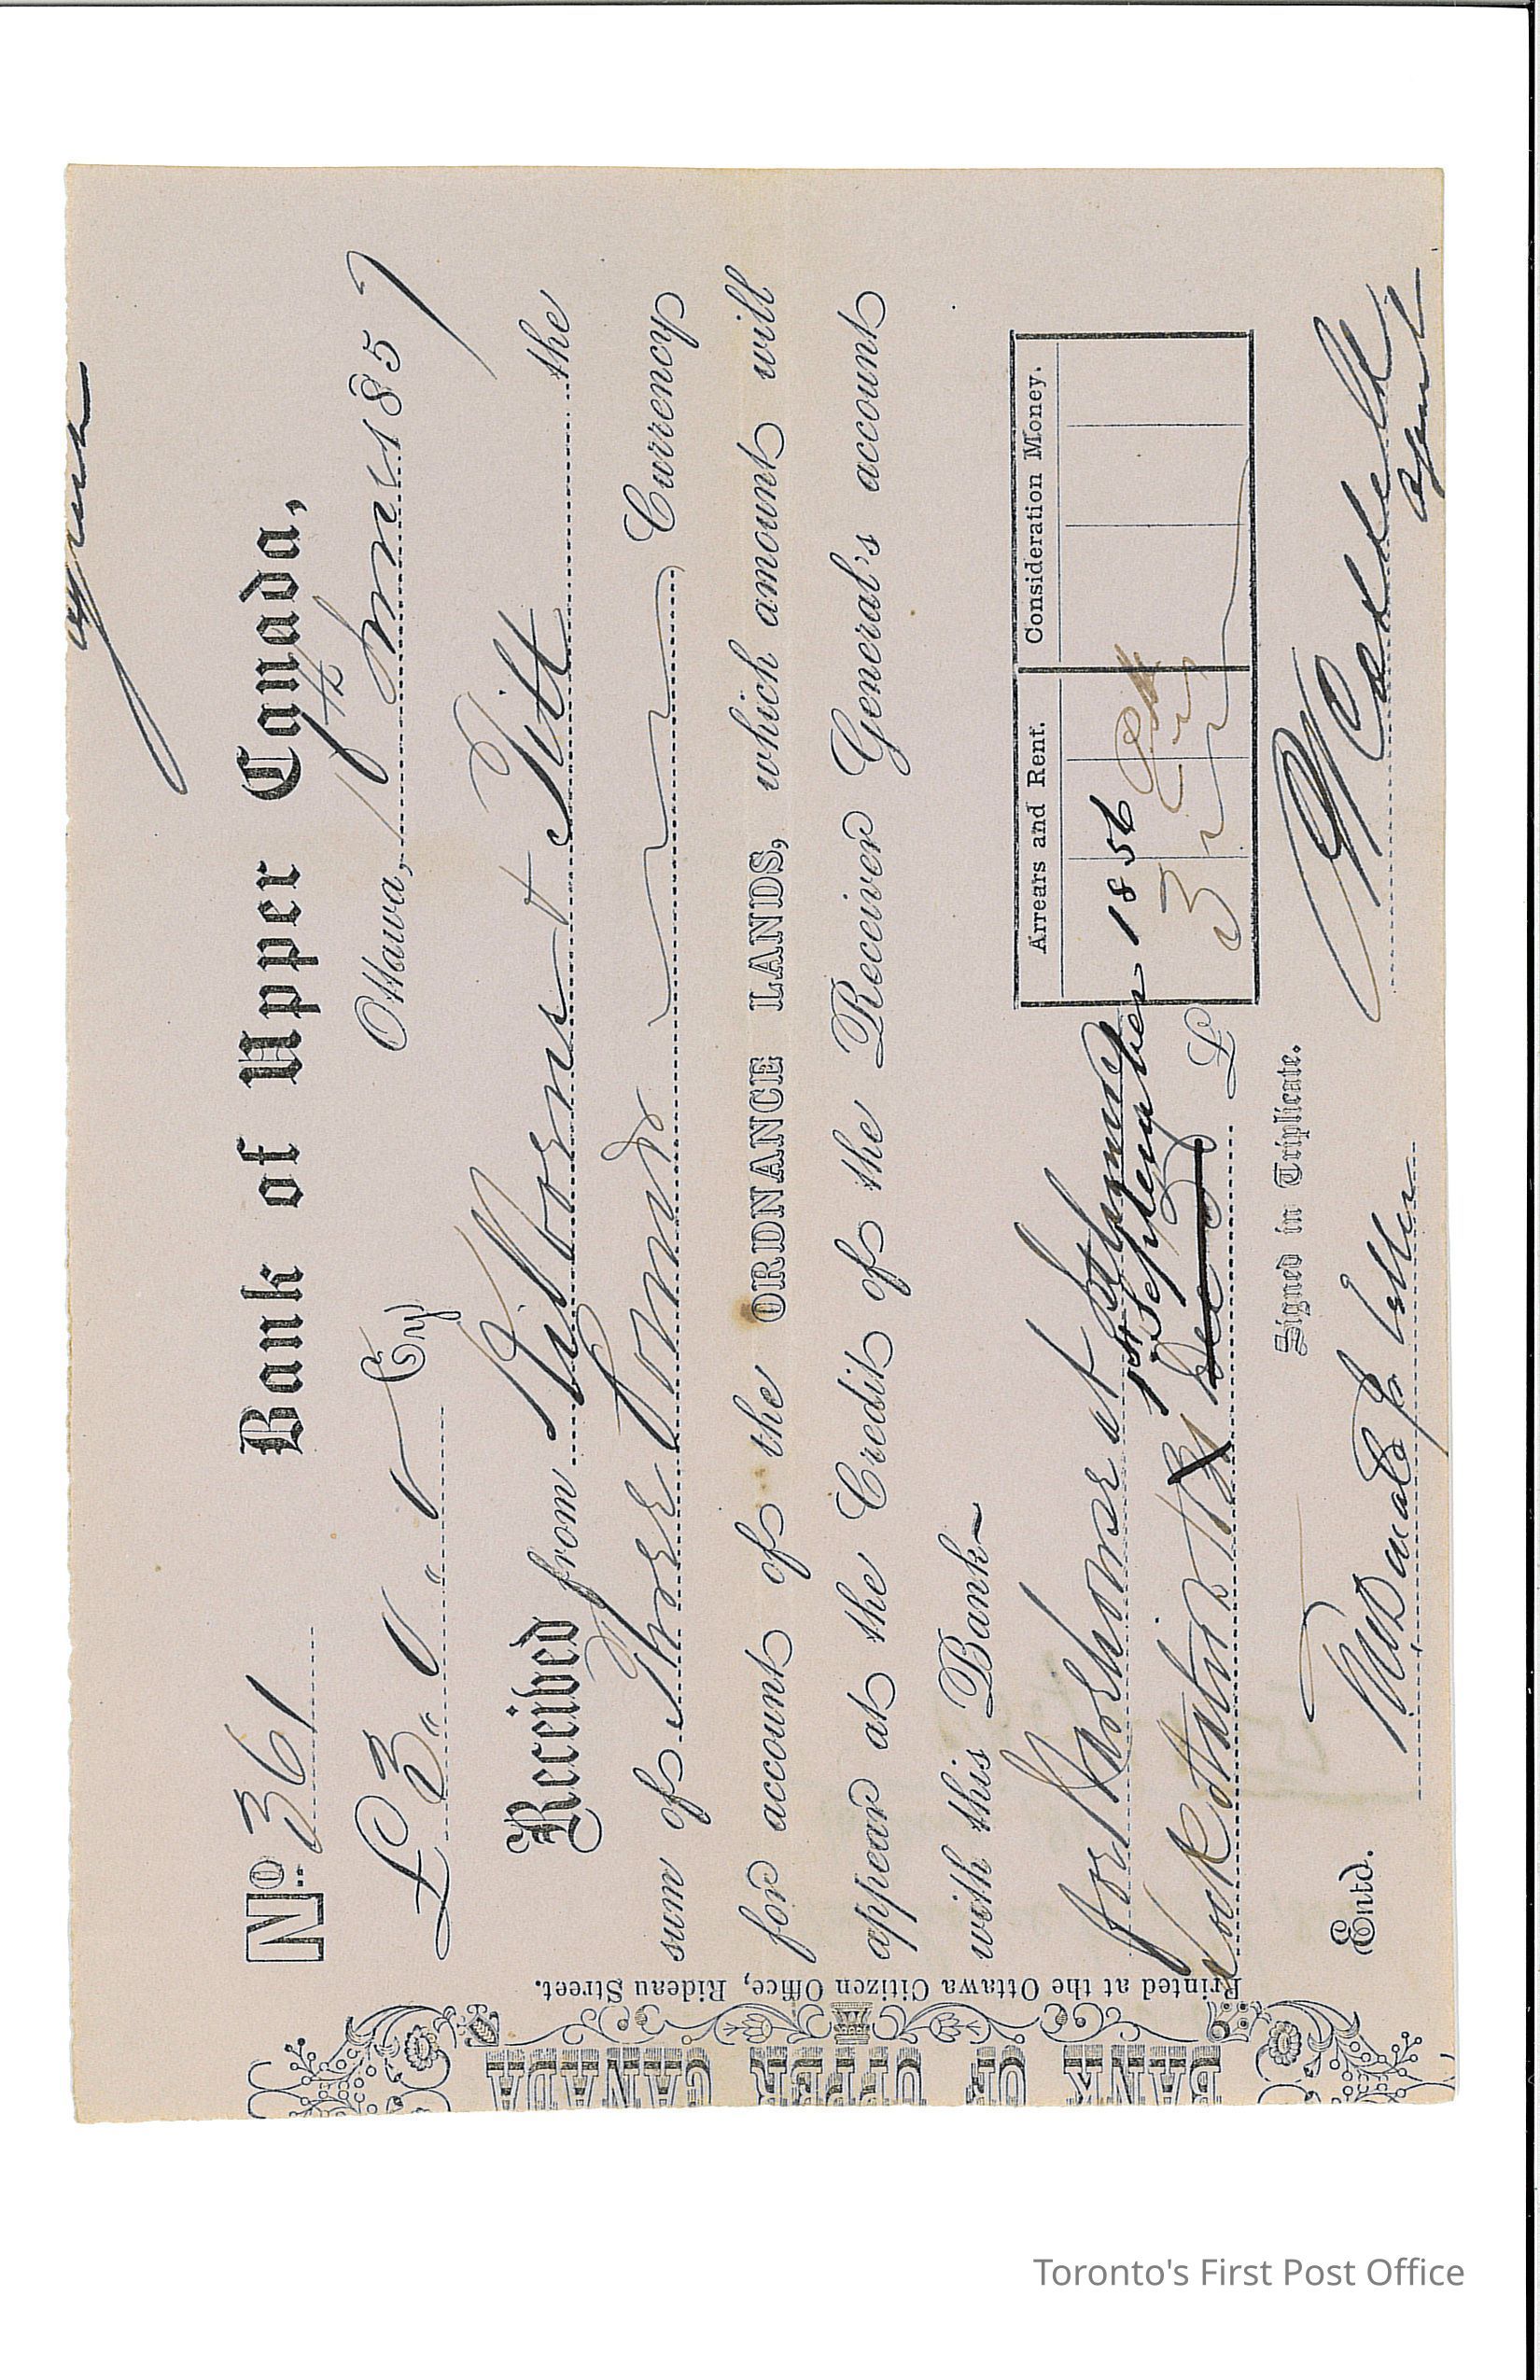 agent
Bank of Upper Canada,
No. 361
Ottawa, 185 7
£ 3 " 0 " 0 Cy
Received from Kilborne & Tett the
sum of Three Pounds Currency
for account of the ORDNANCE LANDS, which amount will
appear at the Credit of the Receiver General's account
with this Bank~
for at
Lock Station
1st September 1856
Arrears and Rent.
Consideration Money.
£ 3
Signed in Triplicate.
Entd.
McDonald
agent
Printed at the Ottawa Citizen Office, Rideau Street.
BANK OF UPPER CANADA
Toronto's First Post Office